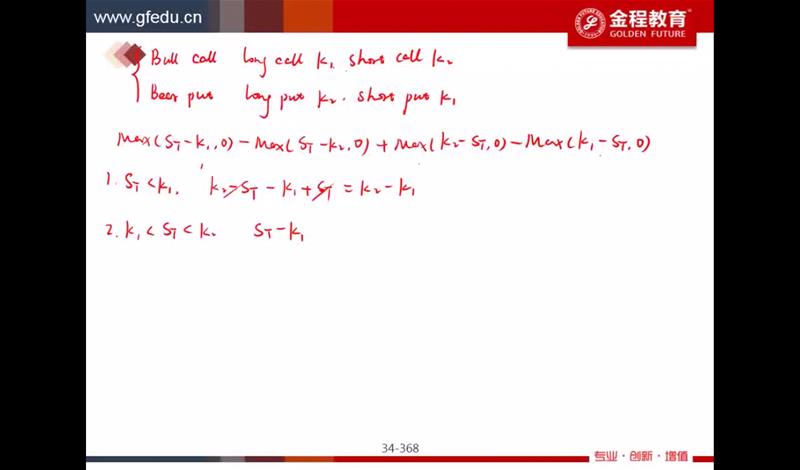 www.gfedu.cn
金程教育
GOLDEN FUTURE
Bull call long call K₁ short call K₂
Bear put long put K₂. short put K₁
Max(S_T-K₁,0) - Max(S_T-K₂,0) + Max(K₂-S_T,0) - Max(K₁-S_T,0)
1. S_T<K₁, K₂-S_T-K₁+S_T = K₂-K₁
2. K₁<S_T<K₂ S_T-K₁
34-368
专业·创新·增值